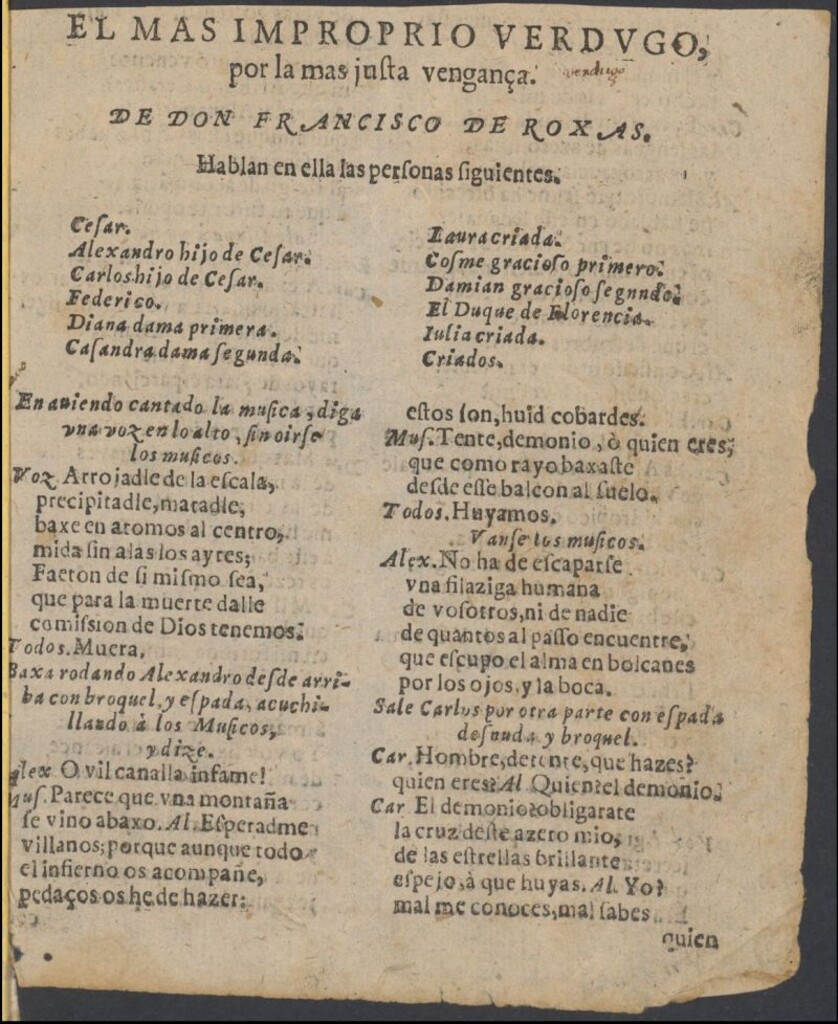 EL MAS IMPROPRIO VERDVGO,
por la mas juſta vengança.
verdugo
DE DON FRANCISCO DE ROXAS.
Hablan en ella las perſonas ſiguientes.
Ceſar.
Alexandro hijo de Ceſar.
Carlos hijo de Ceſar.
Federico.
Diana dama primera.
Caſandra dama ſegunda.
Laura criada.
Coſme gracioſo primero.
Damian gracioſo ſegnndo.
El Duque de Florencia.
Iulia criada.
Criados.
En auiendo cantado la muſica, diga
vna voz en lo alto, ſin oirſe
los muſicos.
Voz Arrojadle de la eſcala,
precipitadle, matadle,
baxe en atomos al centro,
mida ſin alas los ayres;
Faeton de ſi miſmo ſea,
que para la muerte dalle
comiſsion de Dios tenemos.
Todos. Muera,
Baxa rodando Alexandro deſde arri-
ba con broquel, y eſpada, acuchi-
llando à los Muſicos,
y dize.
Alex O vil canalla infame!
Muſ. Parece que vna montaña
ſe vino abaxo. Al. Eſperadme
villanos; porque aunque todo
el infierno os acompañe,
pedaços os he de hazer:
eſtos ſon, huid cobardes.
Muſ. Tente, demonio, ò quien eres;
que como rayo baxaſte
deſde eſſe balcon al ſuelo.
Todos. Huyamos.
Vanſe los muſicos.
Alex. No ha de eſcaparſe
vna filaziga humana
de voſotros, ni de nadie
de quantos al paſſo encuentre,
que eſcupo el alma en bolcanes
por los ojos, y la boca.
Sale Carlos por otra parte con eſpada
deſnuda y broquel.
Car. Hombre, detente, que hazes?
quien eres? Al. Quien? el demonio.
Car El demonio? obligarate
la cruz deſte azero mio,
de las eſtrellas brillante
eſpejo, à que huyas. Al. Yo?
mal me conoces, mal ſabes
quien